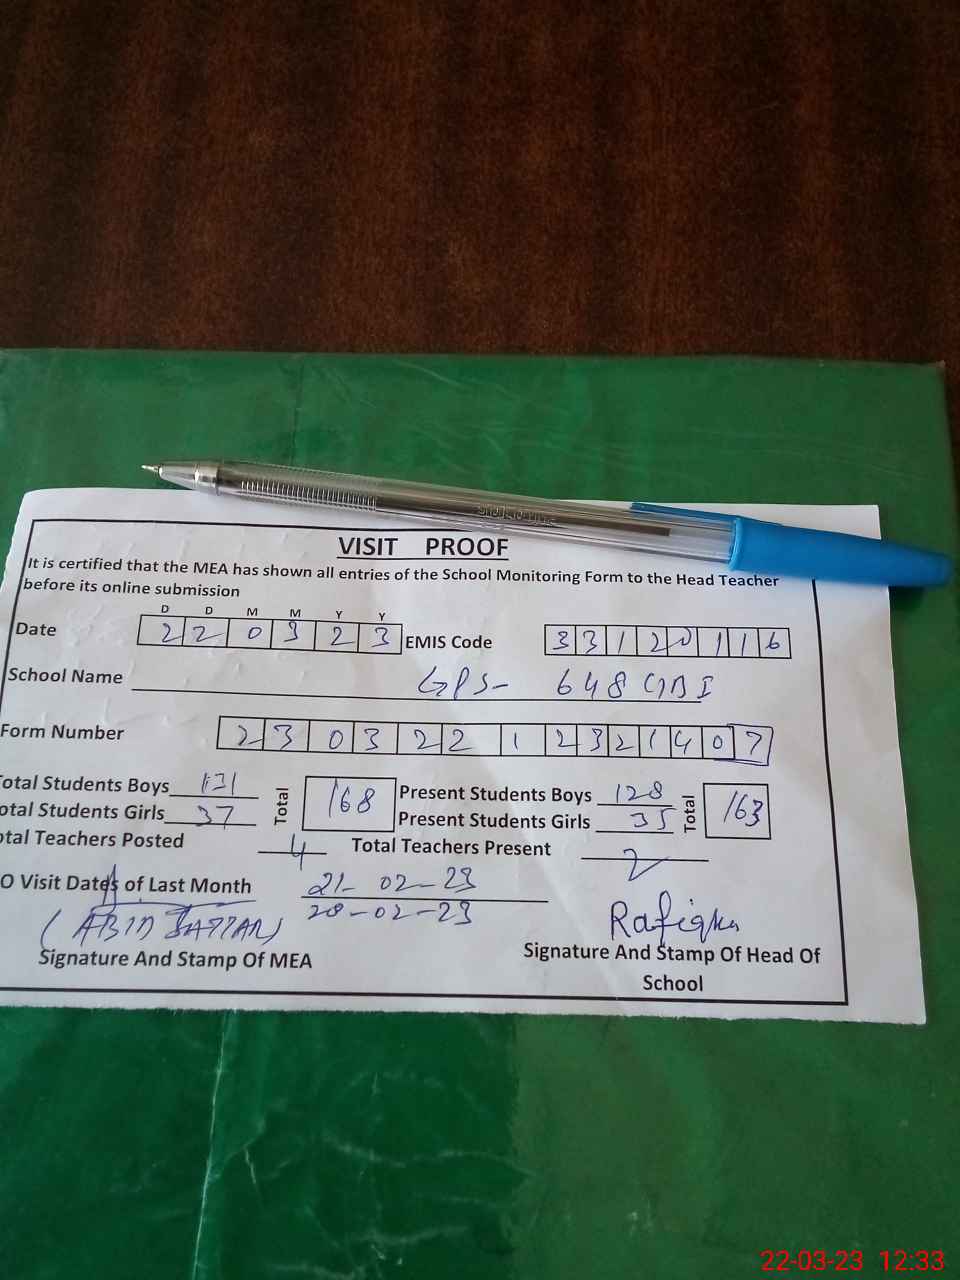 VISIT PROOF
It is certified that the MEA has shown all entries of the School Monitoring Form to the Head Teacher
before its online submission
D D M M Y Y
Date 2 2 0 3 2 3 EMIS Code 3 3 1 2 0 1 1 6
School Name GPS- 648 GB I
Form Number 2 3 0 3 2 2 1 2 3 2 1 4 0 7
otal Students Boys 131 Total 168 Present Students Boys 128 Total 163
otal Students Girls 37 Present Students Girls 35
otal Teachers Posted 4 Total Teachers Present 2
O Visit Dates of Last Month 21-02-23
28-02-23
(ABID SATTAR)
Signature And Stamp Of MEA
Signature And Stamp Of Head Of
School
22-03-23 12:33